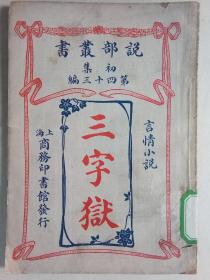 說部叢書
初集
第四十三編
言情小說
三字獄
上海商務印書館發行